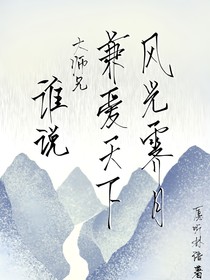 风光霁月
兼爱天下
大师兄
谁说
夏听林语 著